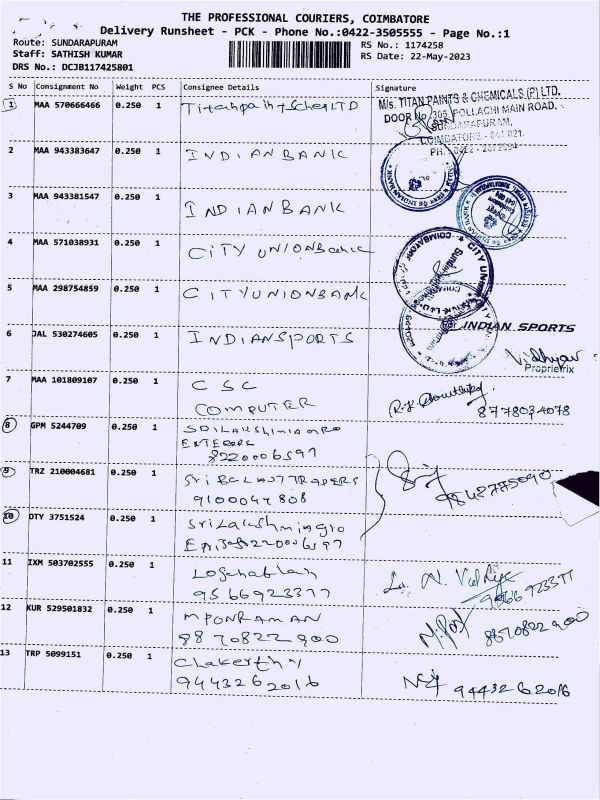 THE PROFESSIONAL COURIERS, COIMBATORE
Delivery Runsheet - PCK - Phone No.:0422-3505555 - Page No.:1
Route: SUNDARAPURAM
Staff: SATHISH KUMAR
DRS No.: DCJB117425801
RS No.: 1174258
RS Date: 22-May-2023
S No Consignment No Weight PCS Consignee Details Signature
1 MAA 570666466 0.250 1
M/s. TITAN PAINTS & CHEMICALS (P) LTD.
DOOR No. 305, POLLACHI MAIN ROAD,
SUNDARAPURAM,
COIMBATORE - 641 021.
2 MAA 943383647 0.250 1 INDIANBANK
3 MAA 943381547 0.250 1 INDIANBANK
4 MAA 571038931 0.250 1 CITY UNIONBank
5 MAA 298754859 0.250 1 CITYUNIONBANK
6 JAL 530274605 0.250 1 INDIANSPORTS
INDIAN SPORTS
Proprietrix
7 MAA 101809107 0.250 1 CSC
COMPUTER
8778034078
8 GPM 5244709 0.250 1
8220006597
9 TRZ 210004681 0.250 1 TRADERS
9100044808
10 DTY 3751524 0.250 1
11 IXM 503702555 0.250 1
9566923377 9566923377
12 KUR 529501832 0.250 1 MPONRAMAN
8870822900 8870822900
13 TRP 5099151 0.250 1
9443262016 9443262016